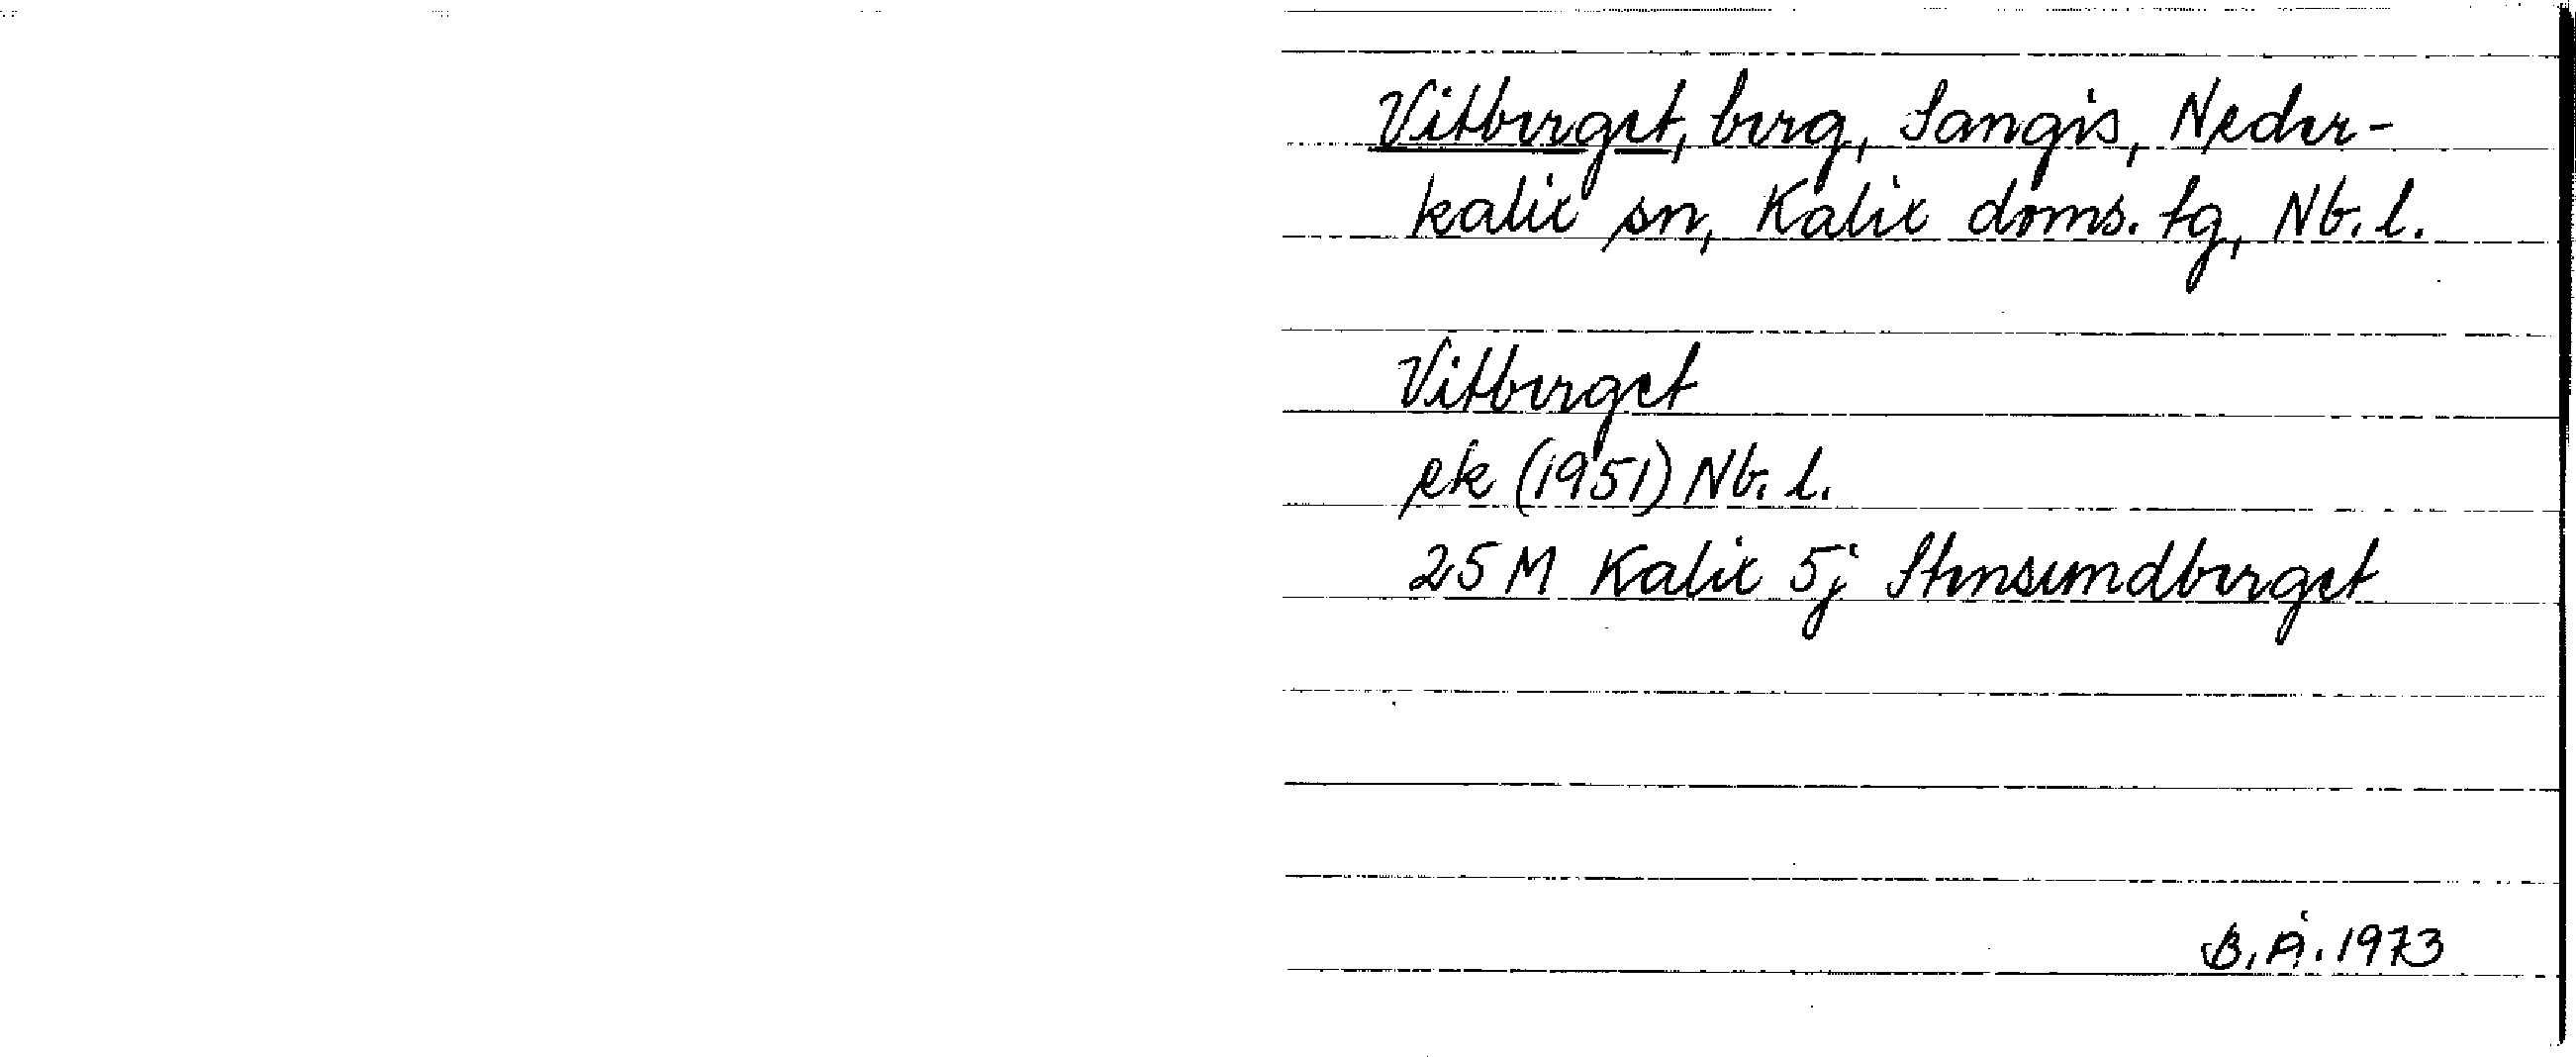 Vitberget, berg, Sangis, Neder-
kalix sn, Kalix doms. tg, Nb. l.
Vitberget
ek (1951) Nb. l.
25 M Kalix 5j Stensundberget
B. Å. 1973